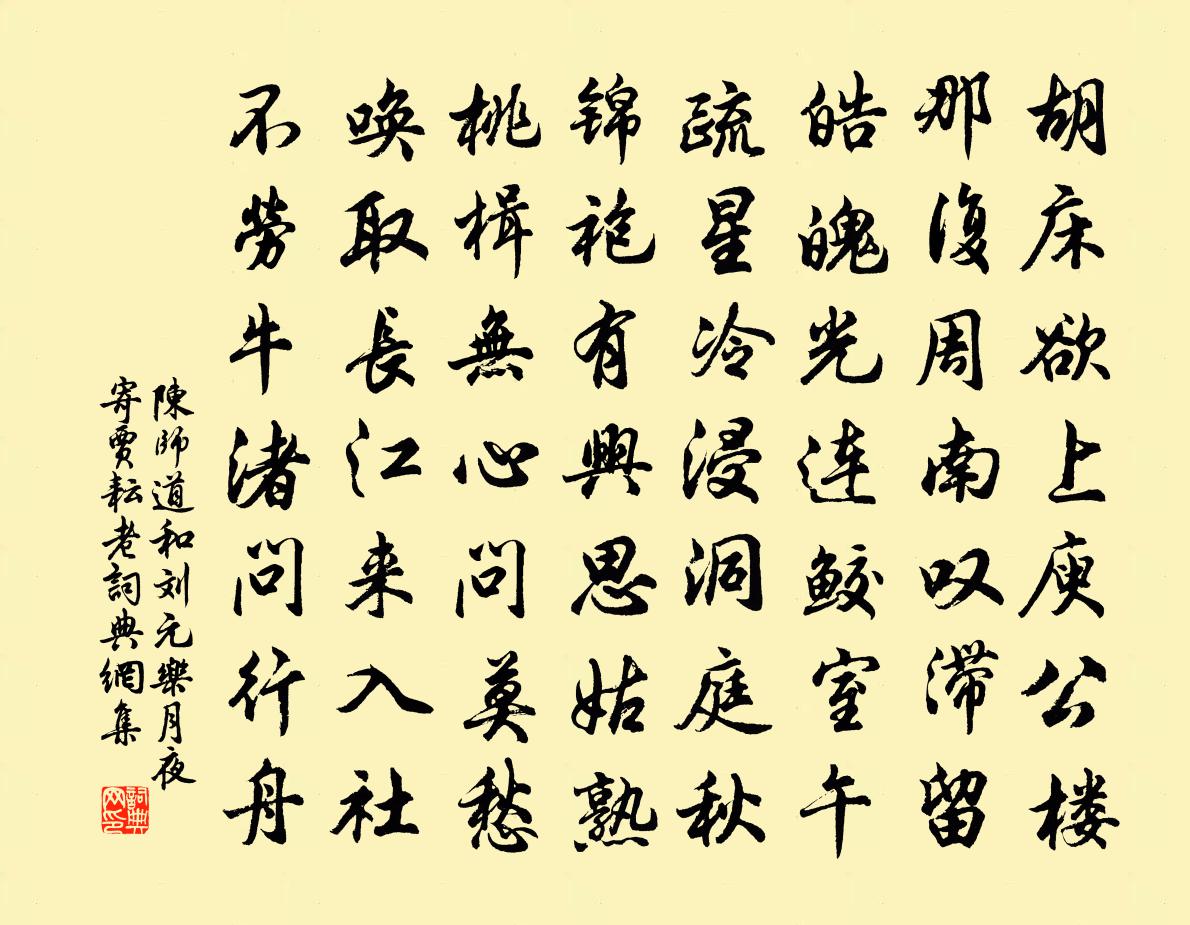 胡床欲上庾公楼
那復周南叹滞留
皓魄光连鲛室午
疏星冷浸洞庭秋
锦袍有興思姑熟
桃楫無心问莫愁
唤取長江来入社
不勞牛渚问行舟
陳師道和刘元樂月夜
寄賈耘老詞典網集
詞典
网印